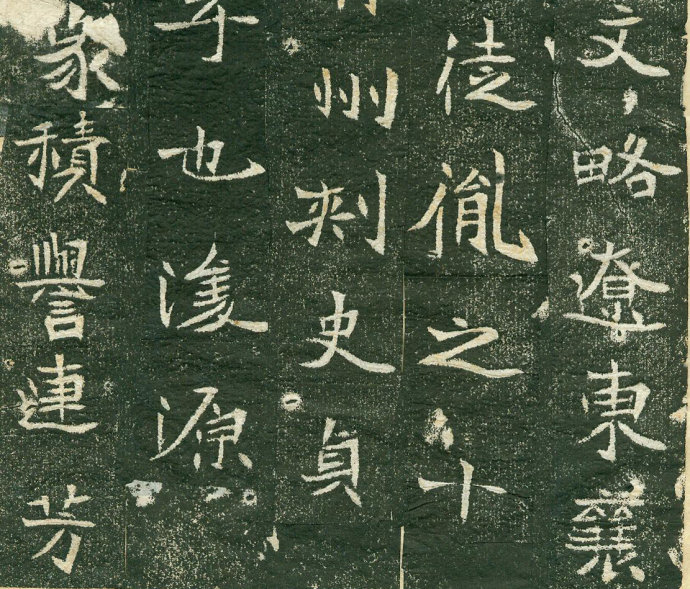 文略遼東襄
徒胤之十
州刺史貞
子也浚源
積譽連芳